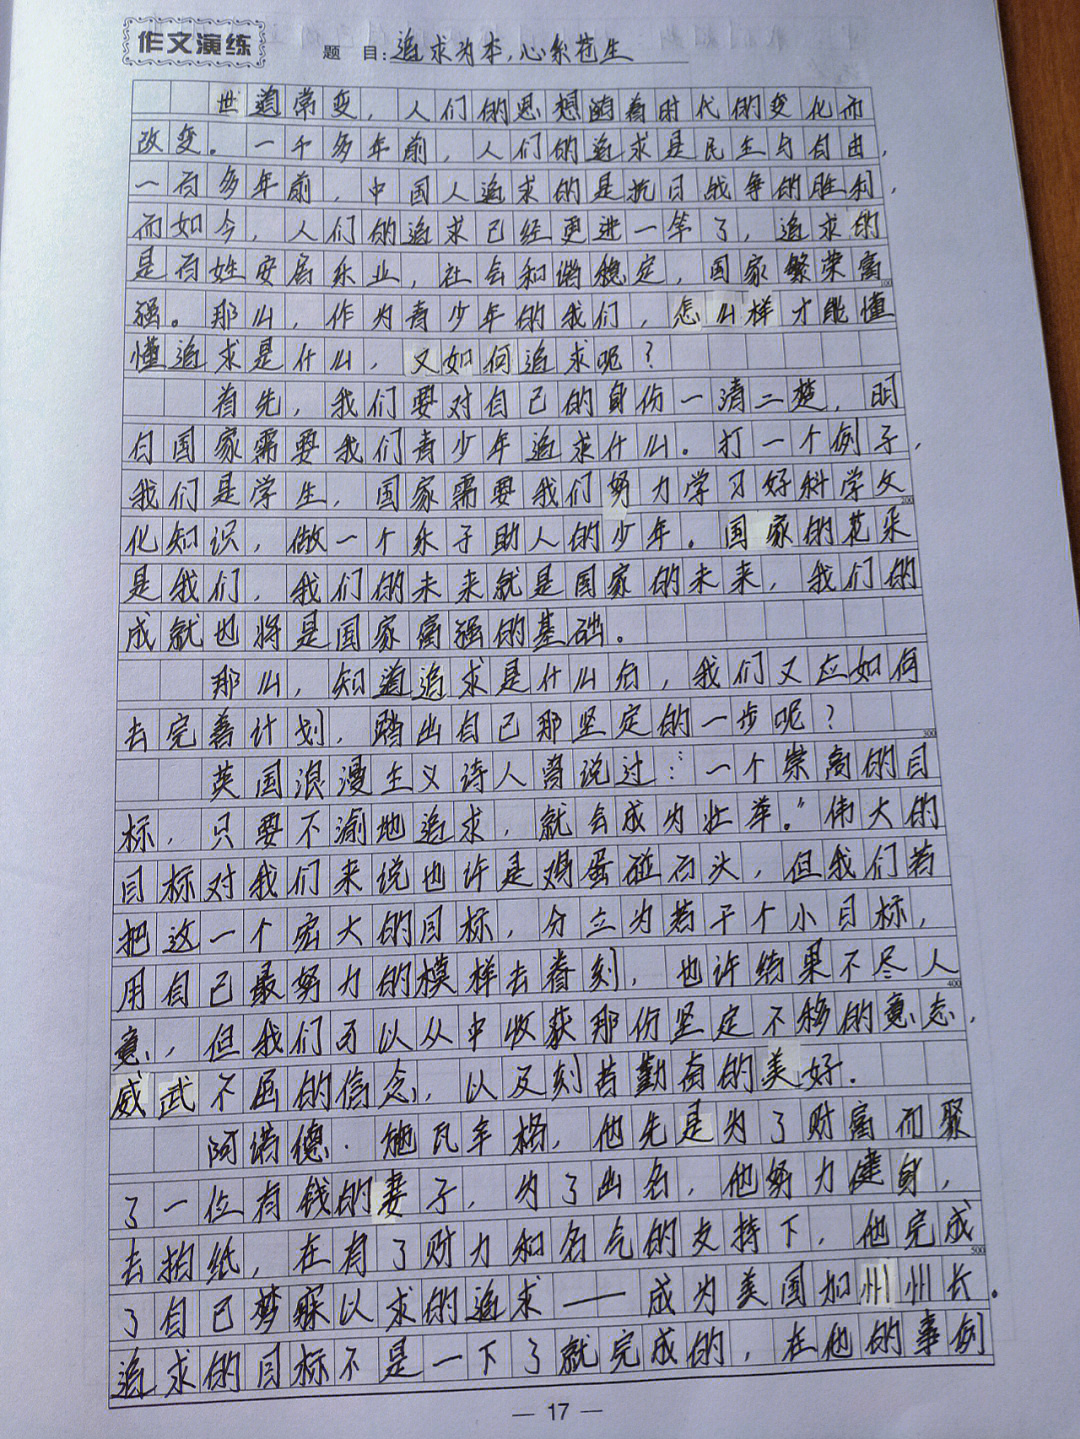 作文演练
题 目：追求为本，心系苍生
世道常变，人们的思想随着时代的变化而
改变。一千多年前，人们的追求是民生与自由，
一百多年前，中国人追求的是抗日战争的胜利，
而如今，人们的追求已经更进一竿了，追求的
是百姓安居乐业，社会和谐稳定，国家繁荣富
100
强。那么，作为青少年的我们，怎么样才能懂
懂追求是什么，又如何追求呢？
首先，我们要对自己的身份一清二楚，明
白国家需要我们青少年追求什么。打一个例子，
我们是学生，国家需要我们努力学习好科学文
200
化知识，做一个乐于助人的少年。国家的花朵
是我们，我们的未来就是国家的未来，我们的
成就也将是国家富强的基础。
那么，知道追求是什么后，我们又应如何
去完善计划，踏出自己那坚定的一步呢？
300
英国浪漫主义诗人曾说过：“一个崇高的目
标，只要不渝地追求，就会成为壮举。”伟大的
目标对我们来说也许是鸡蛋碰石头，但我们若
把这一个宏大的目标，分立为若干个小目标，
用自己最努力的模样去眷刻，也许结果不尽人
400
意，但我们可以从中收获那份坚定不移的意志，
威武不屈的信念，以及刻苦勤奋的美好．
阿诺德·施瓦辛格，他先是为了财富而聚
了一位有钱的妻子，为了出名，他努力健身，
去拍纸，在有了财力和名气的支持下，他完成
500
了自己梦寐以求的追求——成为美国加州州长。
追求的目标不是一下了就完成的，在他的事例
— 17 —